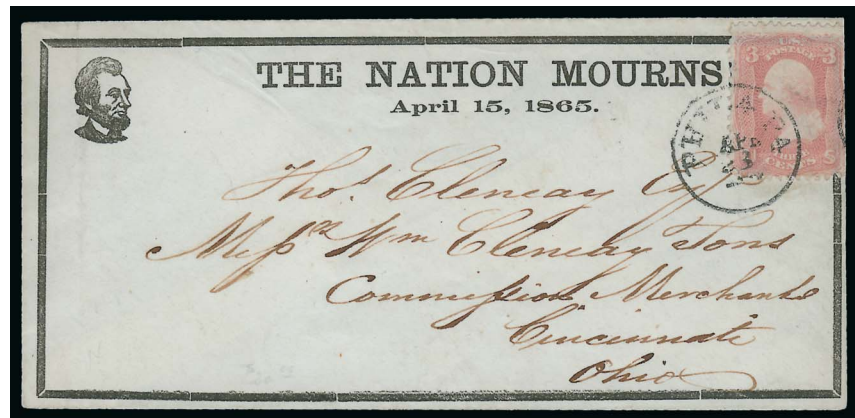 THE NATION MOURNS
April 15, 1865.
U.S.
POSTAGE
3 3
CENTS
PHILA PA
APR
Thos. Cleneay Esq
Messrs Wm Cleneay Sons
Commission Merchants
Cincinnati
Ohio